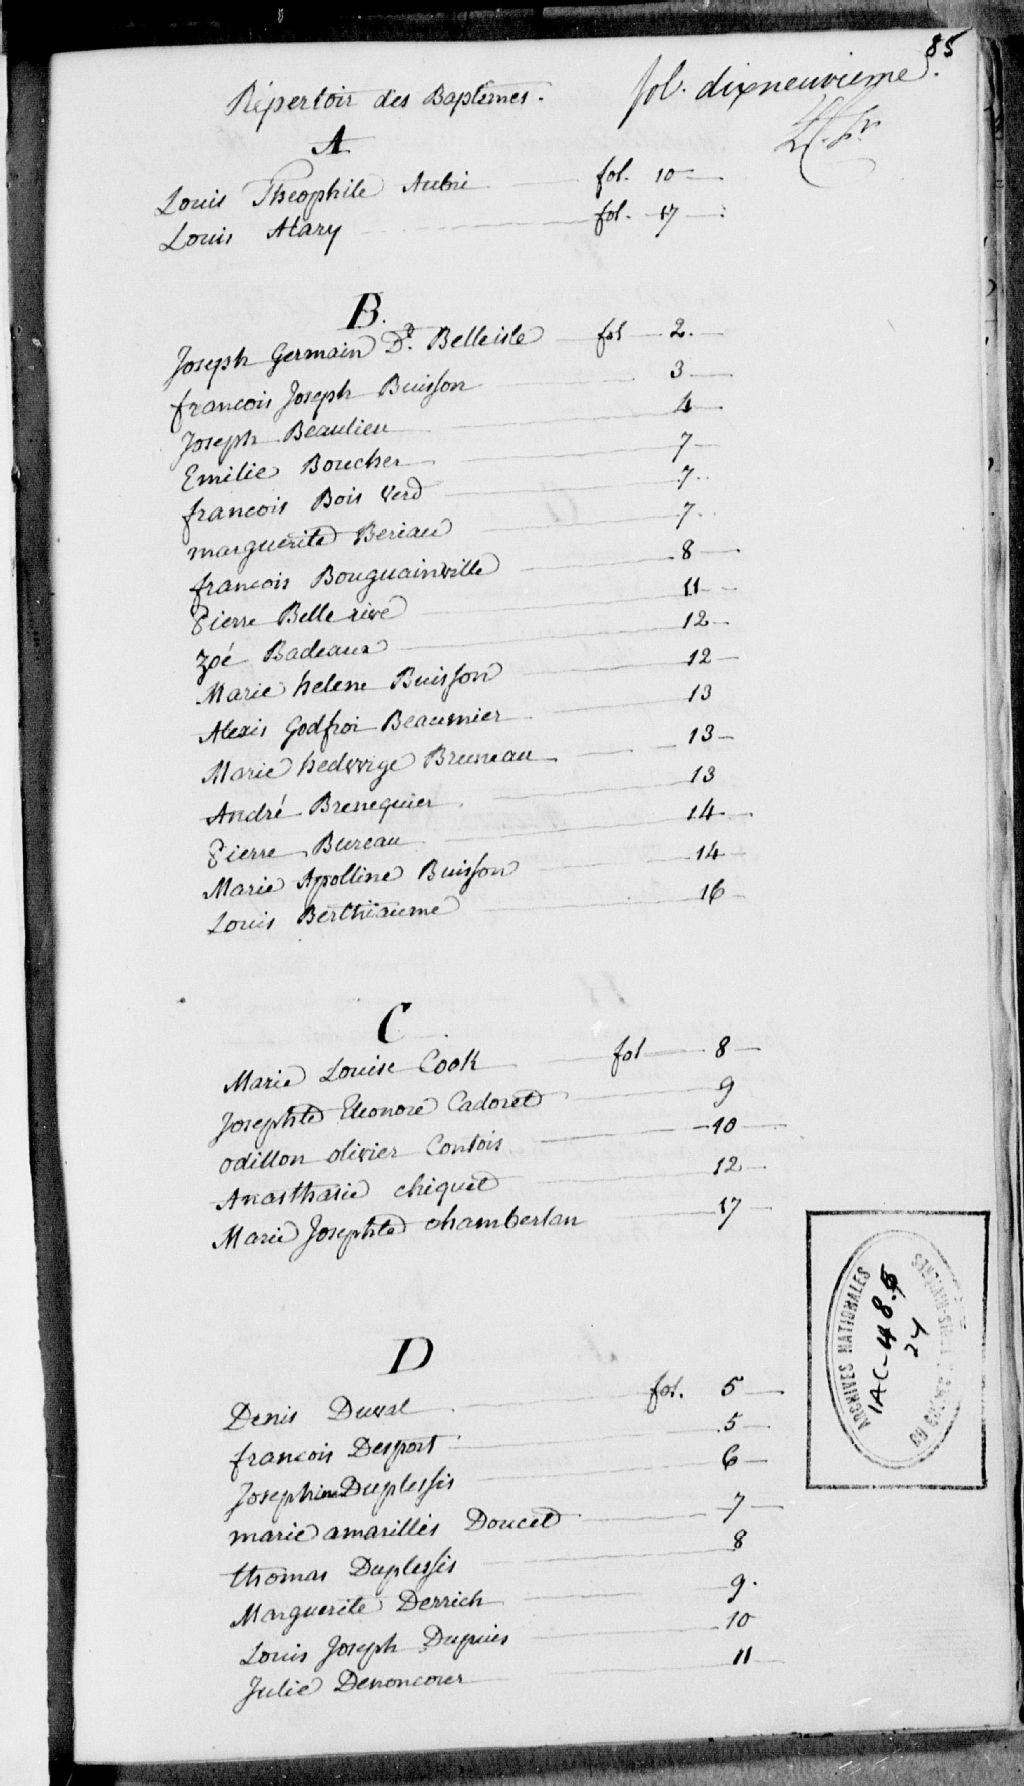 85
Répertoir des Baptêmes. fol. dixneuvieme.
A
Louis Theophile Aubri fol. 10
Louis Alary fol. 17
B.
Joseph Germain Dt. Belleisle fol 2.
francois Joseph Buisson 3
Joseph Beaulieu 4
Emilie Boucher 7
francois Bois Verd 7
marguerite Beriau 7
francois Bouguainville 8
Pierre Belle rive 11
Zoé Badeaux 12
Marie helene Buisson 12
Alexis Godfroi Beaumier 13
Marie hedwige Bruneau 13
André Brenequier 13
Pierre Bureau 14
Marie Apolline Buisson 14
Louis Berthiaume 16
C
Marie Louise Cook fol 8
Josephte Eleonore Cadoret 9
odillon olivier Contois 10
Anasthasie chiquet 12
Marie Josephte chamberlan 17
ARCHIVES NATIONALES
DU QUÉBEC
IAC-48.
24
D
Denis Duval fol. 5
francois Desport 5
Josephine Duplessis 6
marie amarillis Doucet 7
thomas Duplessis 8
Marguerite Derrich 9.
Louis Joseph Dupuis 10
Julie Denoncour 11